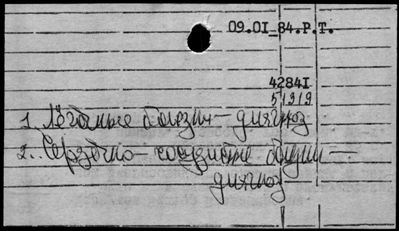 09.01_84.P.T.
42841
51919
1. Лёгочные болезни - диагноз
2. Сердечно - сосудистые болезни -
диагноз